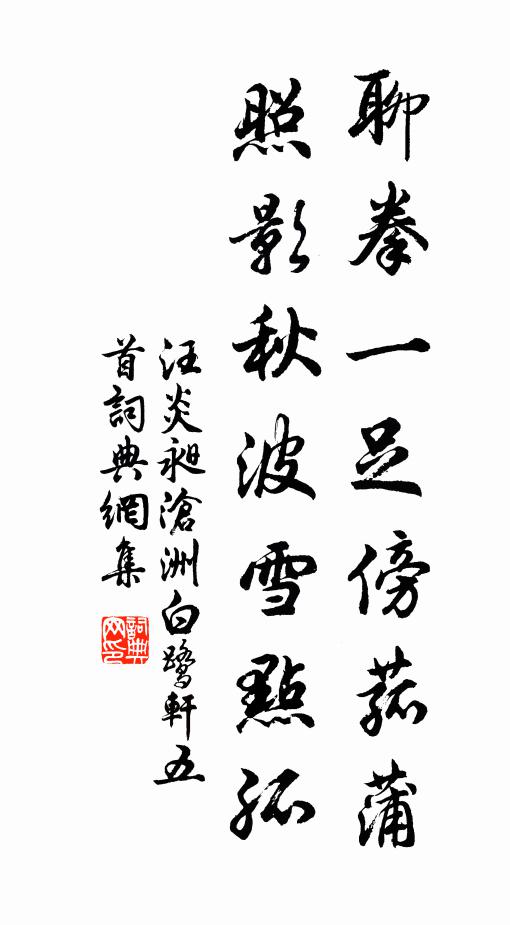 聊拳一足傍菰蒲
照影秋波雪點孤
汪炎昶滄洲白鷺軒五
首詞典網集
詞典网印